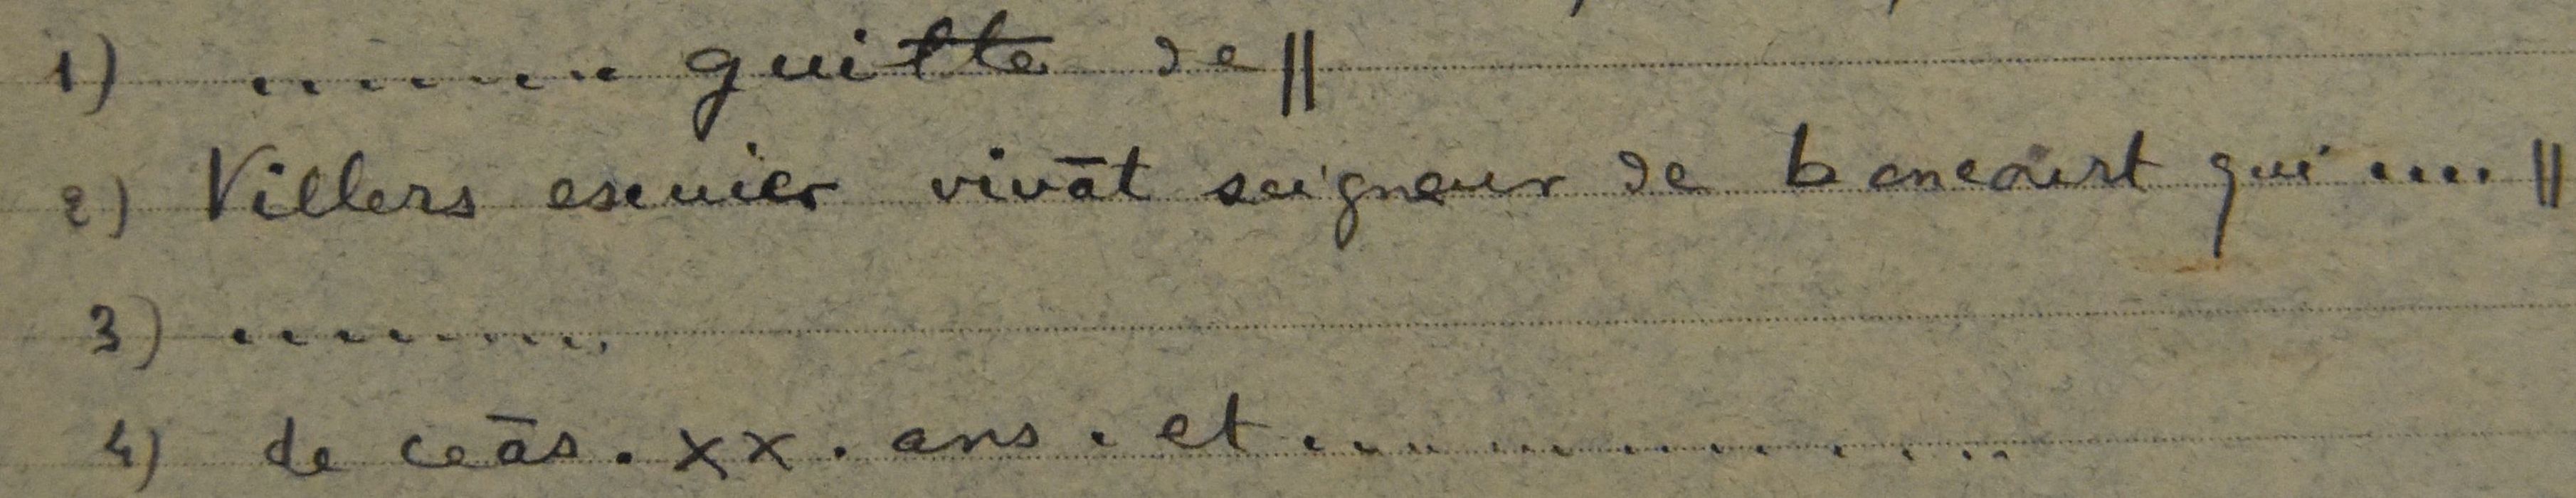 1) ......... guitte de ||
2) Villers escuier vivāt seigneur de bencourt qui .... ||
3) .........
4) de ceās . xx . ans . et ............